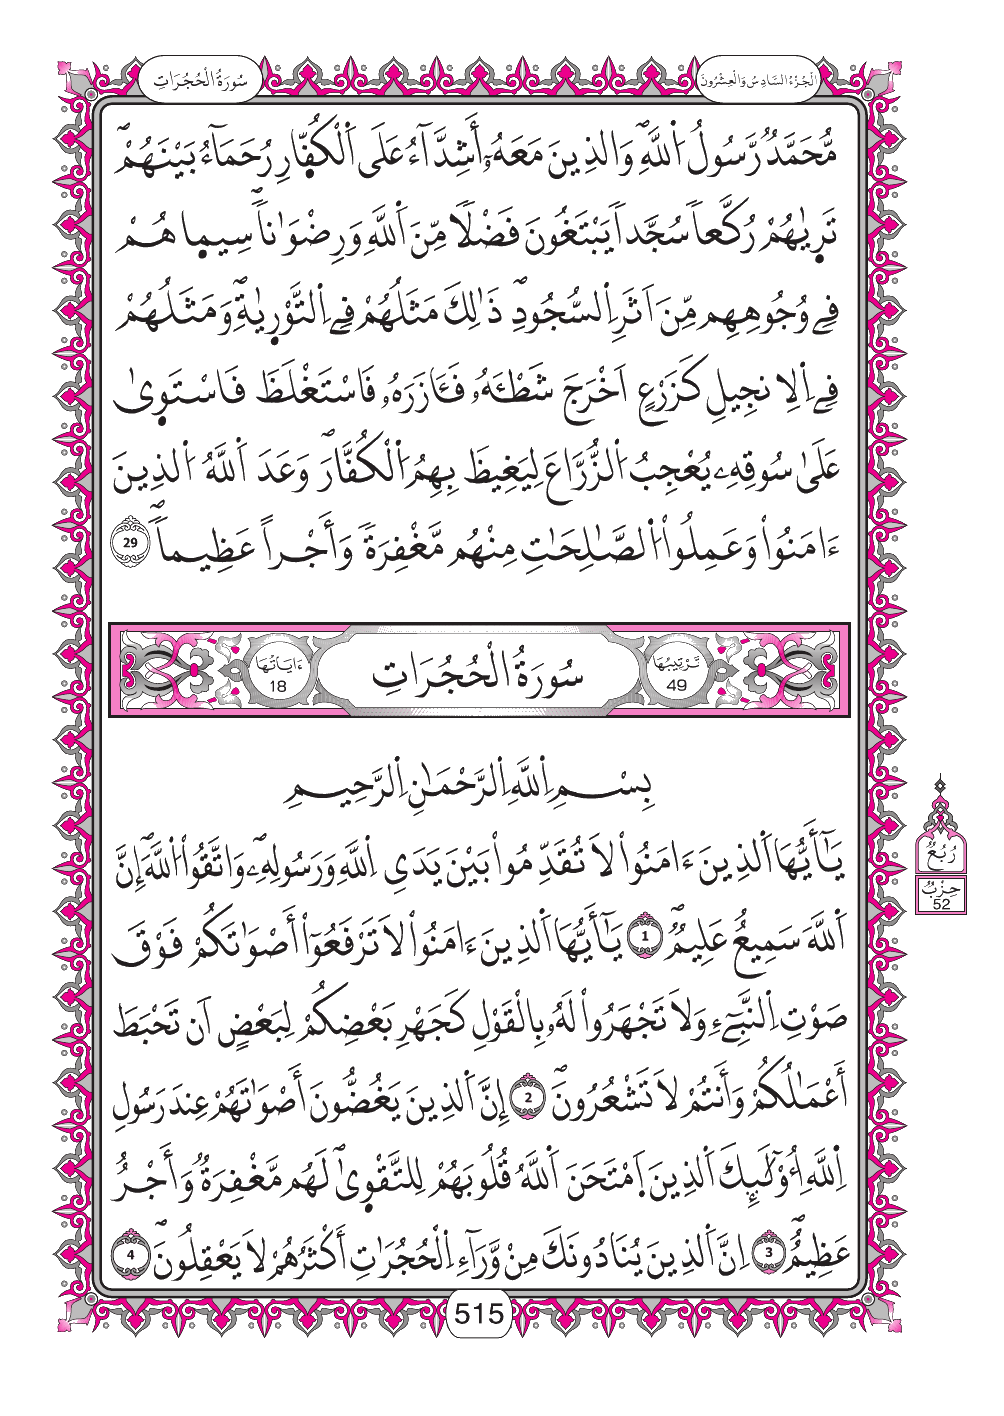 سُورَةُ الْحُجُرَاتِ
الْجُزْءُ السَّادِسُ وَالْعِشْرُونَ
مُّحَمَّدٌ رَّسُولُ اُللَّهِ وَالذِينَ مَعَهُۥٓ أَشِدَّآءُ عَلَى اَلْكُفّ۪ارِ رُحَمَآءُ بَيْنَهُمْ
تَر۪ىٰهُمْ رُكَّعاٗ سُجَّداٗ يَبْتَغُونَ فَضْلاٗ مِّنَ اَللَّهِ وَرِضْوَٰناٗ سِيم۪اهُمْ
فِے وُجُوهِهِم مِّنَ اَثَرِ اِلسُّجُودِ ذَٰلِكَ مَثَلُهُمْ فِے اِلتَّوْر۪ىٰةِ وَمَثَلُهُمْ
فِے اِلِانجِيلِ كَزَرْعٍ اَخْرَجَ شَطْـَٔهُۥ فَـَٔازَرَهُۥ فَاسْتَغْلَظَ فَاسْتَو۪ىٰ
عَلَىٰ سُوقِهِۦ يُعْجِبُ اُلزُّرَّاعَ لِيَغِيظَ بِهِمُ اُلْكُفَّارَ وَعَدَ اَللَّهُ اُلذِينَ
ءَامَنُواْ وَعَمِلُواْ اُلصَّٰلِحَٰتِ مِنْهُم مَّغْفِرَةٗ وَأَجْراً عَظِيماٗ 29
تَرْتِيبُهَا 49 سُورَةُ الْحُجُرَاتِ ءَايَاتُهَا 18
بِسْمِ اِللَّهِ اِلرَّحْمَٰنِ اِلرَّحِيمِ
يَٰٓأَيُّهَا اَلذِينَ ءَامَنُواْ لَا تُقَدِّمُواْ بَيْنَ يَدَيِ اِللَّهِ وَرَسُولِهِۦ وَاتَّقُواْ اُللَّهَ إِنَّ
اَللَّهَ سَمِيعٌ عَلِيمٌ 1 يَٰٓأَيُّهَا اَلذِينَ ءَامَنُواْ لَا تَرْفَعُوٓاْ أَصْوَٰتَكُمْ فَوْقَ
صَوْتِ اِلنَّبِےٓءِ وَلَا تَجْهَرُواْ لَهُۥ بِالْقَوْلِ كَجَهْرِ بَعْضِكُمْ لِبَعْضٍ اَن تَحْبَطَ
أَعْمَٰلُكُمْ وَأَنتُمْ لَا تَشْعُرُونَ 2 إِنَّ اَلذِينَ يَغُضُّونَ أَصْوَٰتَهُمْ عِندَ رَسُولِ
اِللَّهِ أُوْلَٰٓئِكَ اَلذِينَ اَمْتَحَنَ اَللَّهُ قُلُوبَهُمْ لِلتَّقْو۪ىٰ لَهُم مَّغْفِرَةٞ وَأَجْرٌ
عَظِيمٌ 3 اِنَّ اَلذِينَ يُنَادُونَكَ مِنْ وَّرَآءِ اِلْحُجُرَٰتِ أَكْثَرُهُمْ لَا يَعْقِلُونَ 4
رُبُعُ
حِزْبُ
52
515